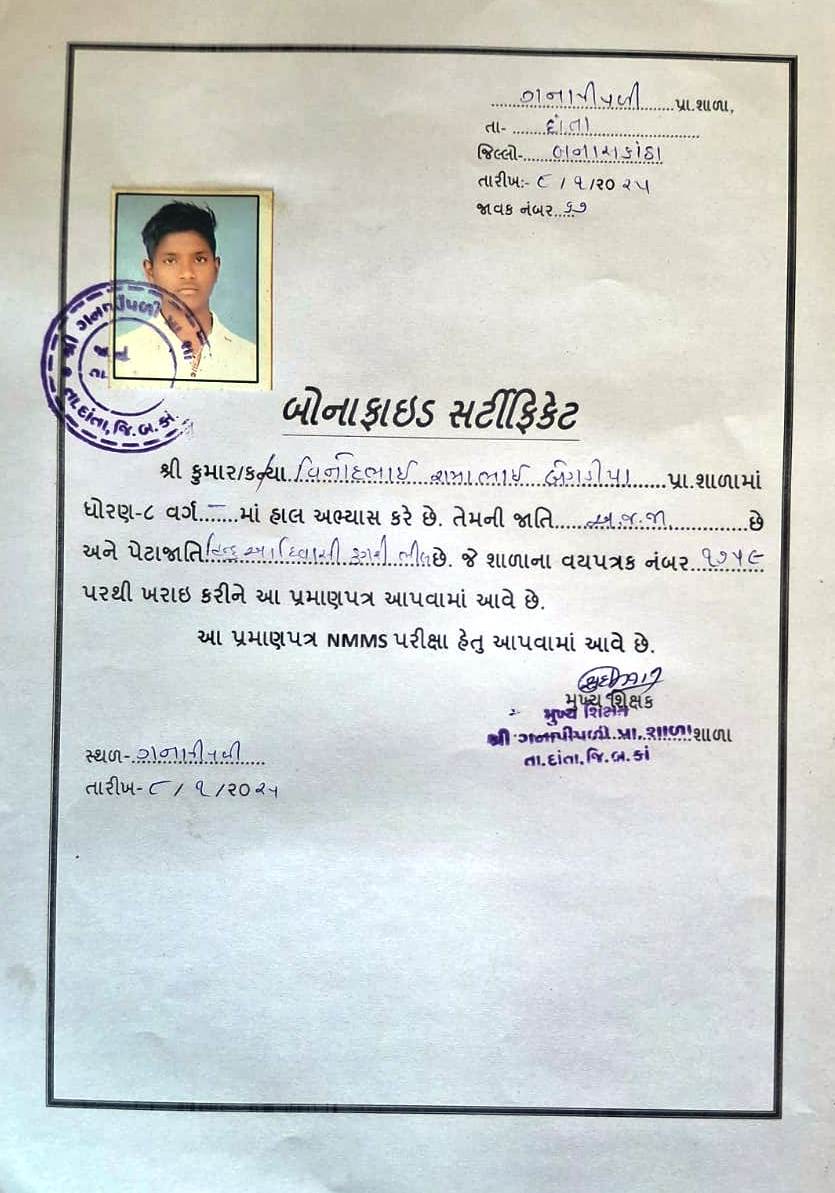 ગનાપીપળી પ્રા.શાળા,
તા- દાંતા
જિલ્લો- બનાસકાંઠા
તારીખ:- ૮ / ૧ /૨૦ ૨૫
જાવક નંબર ૬૭
શ્રી ગનાપીપળી પ્રા શાળા
તા.દાંતા, જિ. બ. કાં.
બોનાફાઇડ સર્ટીફિકેટ
શ્રી કુમાર/કન્યા વિનોદભાઈ રામાભાઈ પ્રા.શાળામાં
ધોરણ-૮ વર્ગ – માં હાલ અભ્યાસ કરે છે. તેમની જાતિ અ.જ.જા છે
અને પેટાજાતિ હિન્દુ આદિવાસી ડુંગરી ભીલ છે. જે શાળાના વયપત્રક નંબર ૧૭૫૯
પરથી ખરાઇ કરીને આ પ્રમાણપત્ર આપવામાં આવે છે.
આ પ્રમાણપત્ર NMMS પરીક્ષા હેતુ આપવામાં આવે છે.
મુખ્ય શિક્ષક
મુખ્ય શિક્ષક
શ્રી ગનાપીપળી પ્રા. શાળા શાળા
તા.દાંતા, જિ. બ. કાં
સ્થળ- ગનાપીપળી
તારીખ- ૮ / ૧ /૨૦ ૨૫